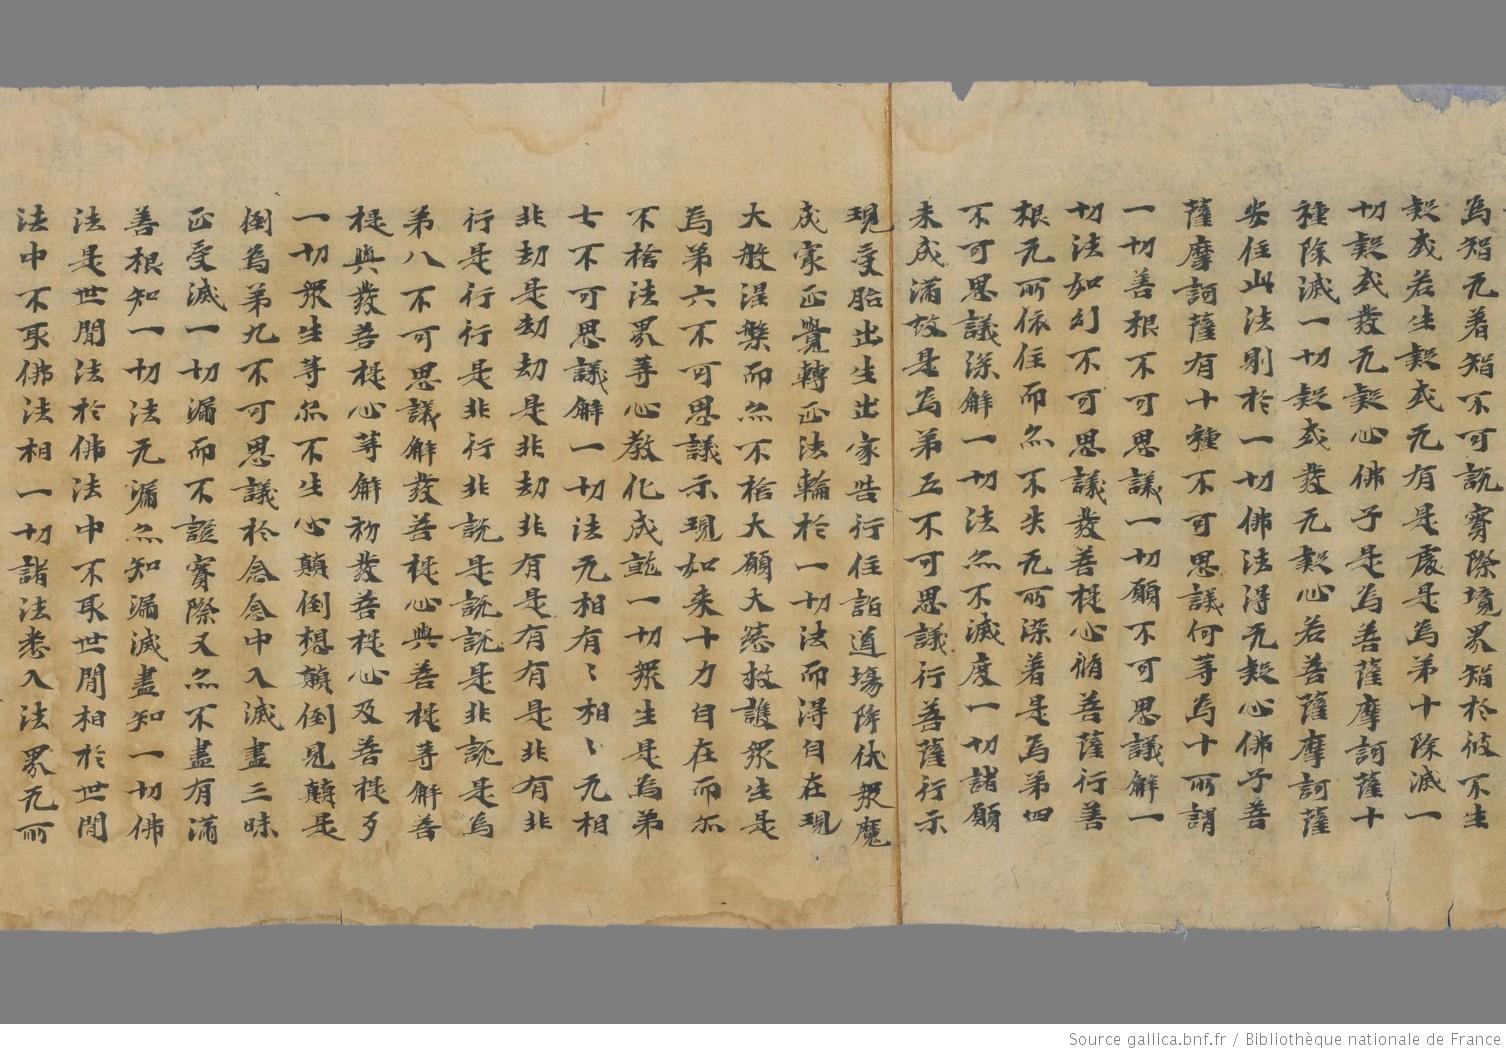 為智无著智不可說實際境界智於彼不生
疑或若生疑或无有是處是為第十除滅一
切疑或發无疑心佛子是為菩薩摩訶薩十
種除滅一切疑或發无疑心若菩薩摩訶薩
安住此法則於一切佛法得无疑心佛子菩
薩摩訶薩有十種不可思議何等為十所謂
一切善根不可思議一切願不可思議解一
切法如幻不可思議發菩提心脩菩薩行善
根无所依住而尒不失无所染著是為第四
不可思議深解一切法尒不滅度一切諸願
未成滿故是為第五不可思議行菩薩行示
現受胎出生出家苦行住詣道場降伏眾魔
成㝡正覺轉正法輪於一切法而得自在現
大般涅槃而尒不捨大願大慈救護眾生是
為第六不可思議示現如來十力自在而尒
不捨法界等心教化成就一切眾生是為第
七不可思議解一切法无相有〻相〻无相
非劫是劫劫是非劫非有是有有是非有非
行是行行是非行非說是說說是非說是為
第八不可思議解發菩提心與菩提等解菩
提與發菩提心等解初發菩提心及菩提歹
一切眾生等尒不生心顛倒想顛倒見顛是
倒為第九不可思議於念念中入滅盡三昧
正受滅一切漏而不證實際又尒不盡有滿
善根知一切法无漏尒知漏滅盡知一切佛
法是世閒法於佛法中不取世閒相於世閒
法中不取佛法相一切諸法悉入法界无所
Source gallica.bnf.fr / Bibliothèque nationale de France